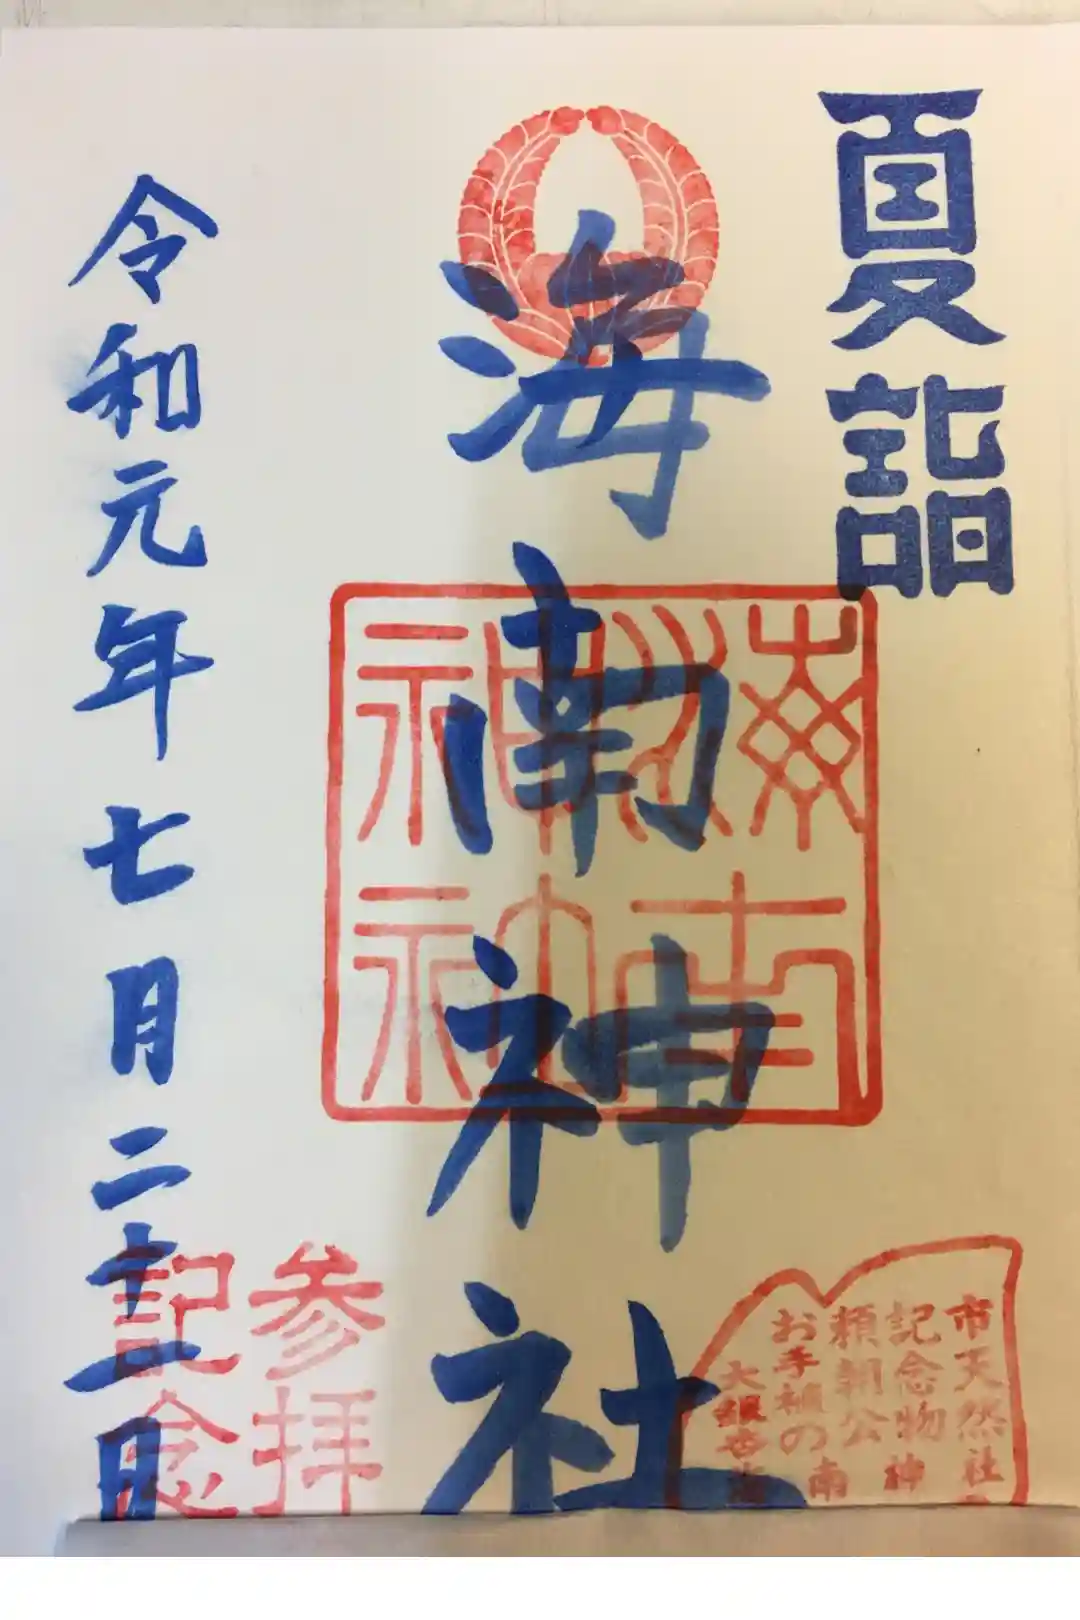 夏詣
海南神社
海南
神社
令和元年七月二十一日
市天然
記念物
頼朝公
お手植の
大銀杏
南神社
参拝
記念